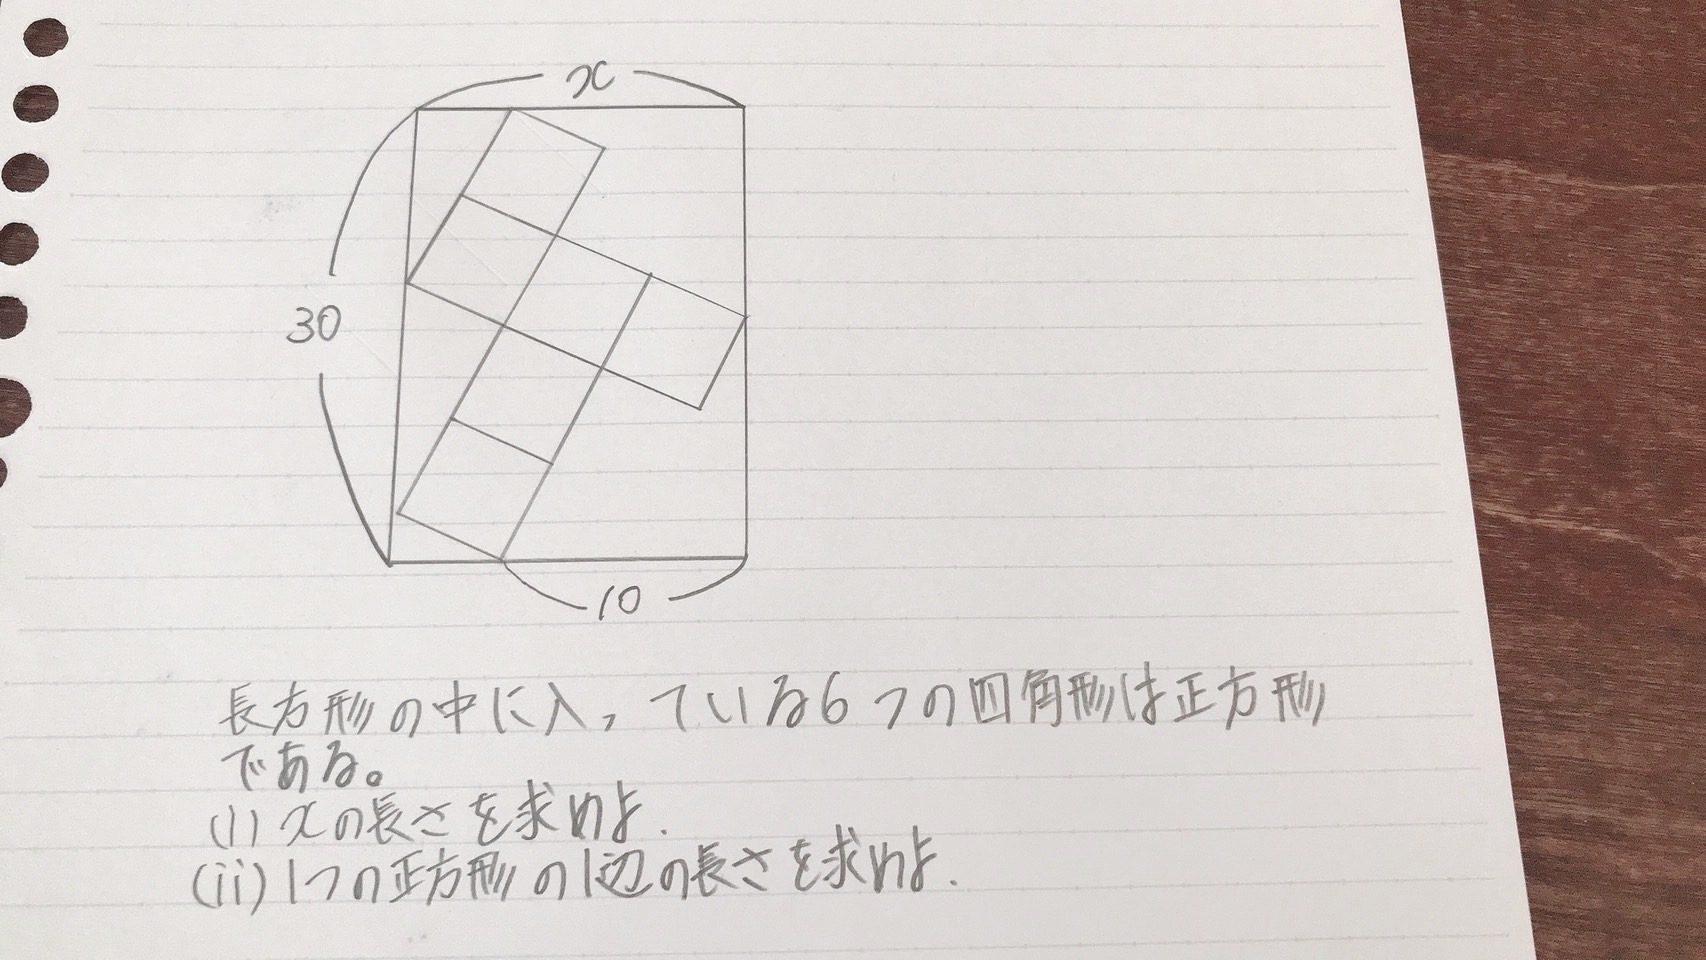 x
30
10
長方形の中に入っている6つの四角形は正方形
である。
(i) xの長さを求めよ.
(ii) 1つの正方形の1辺の長さを求めよ.